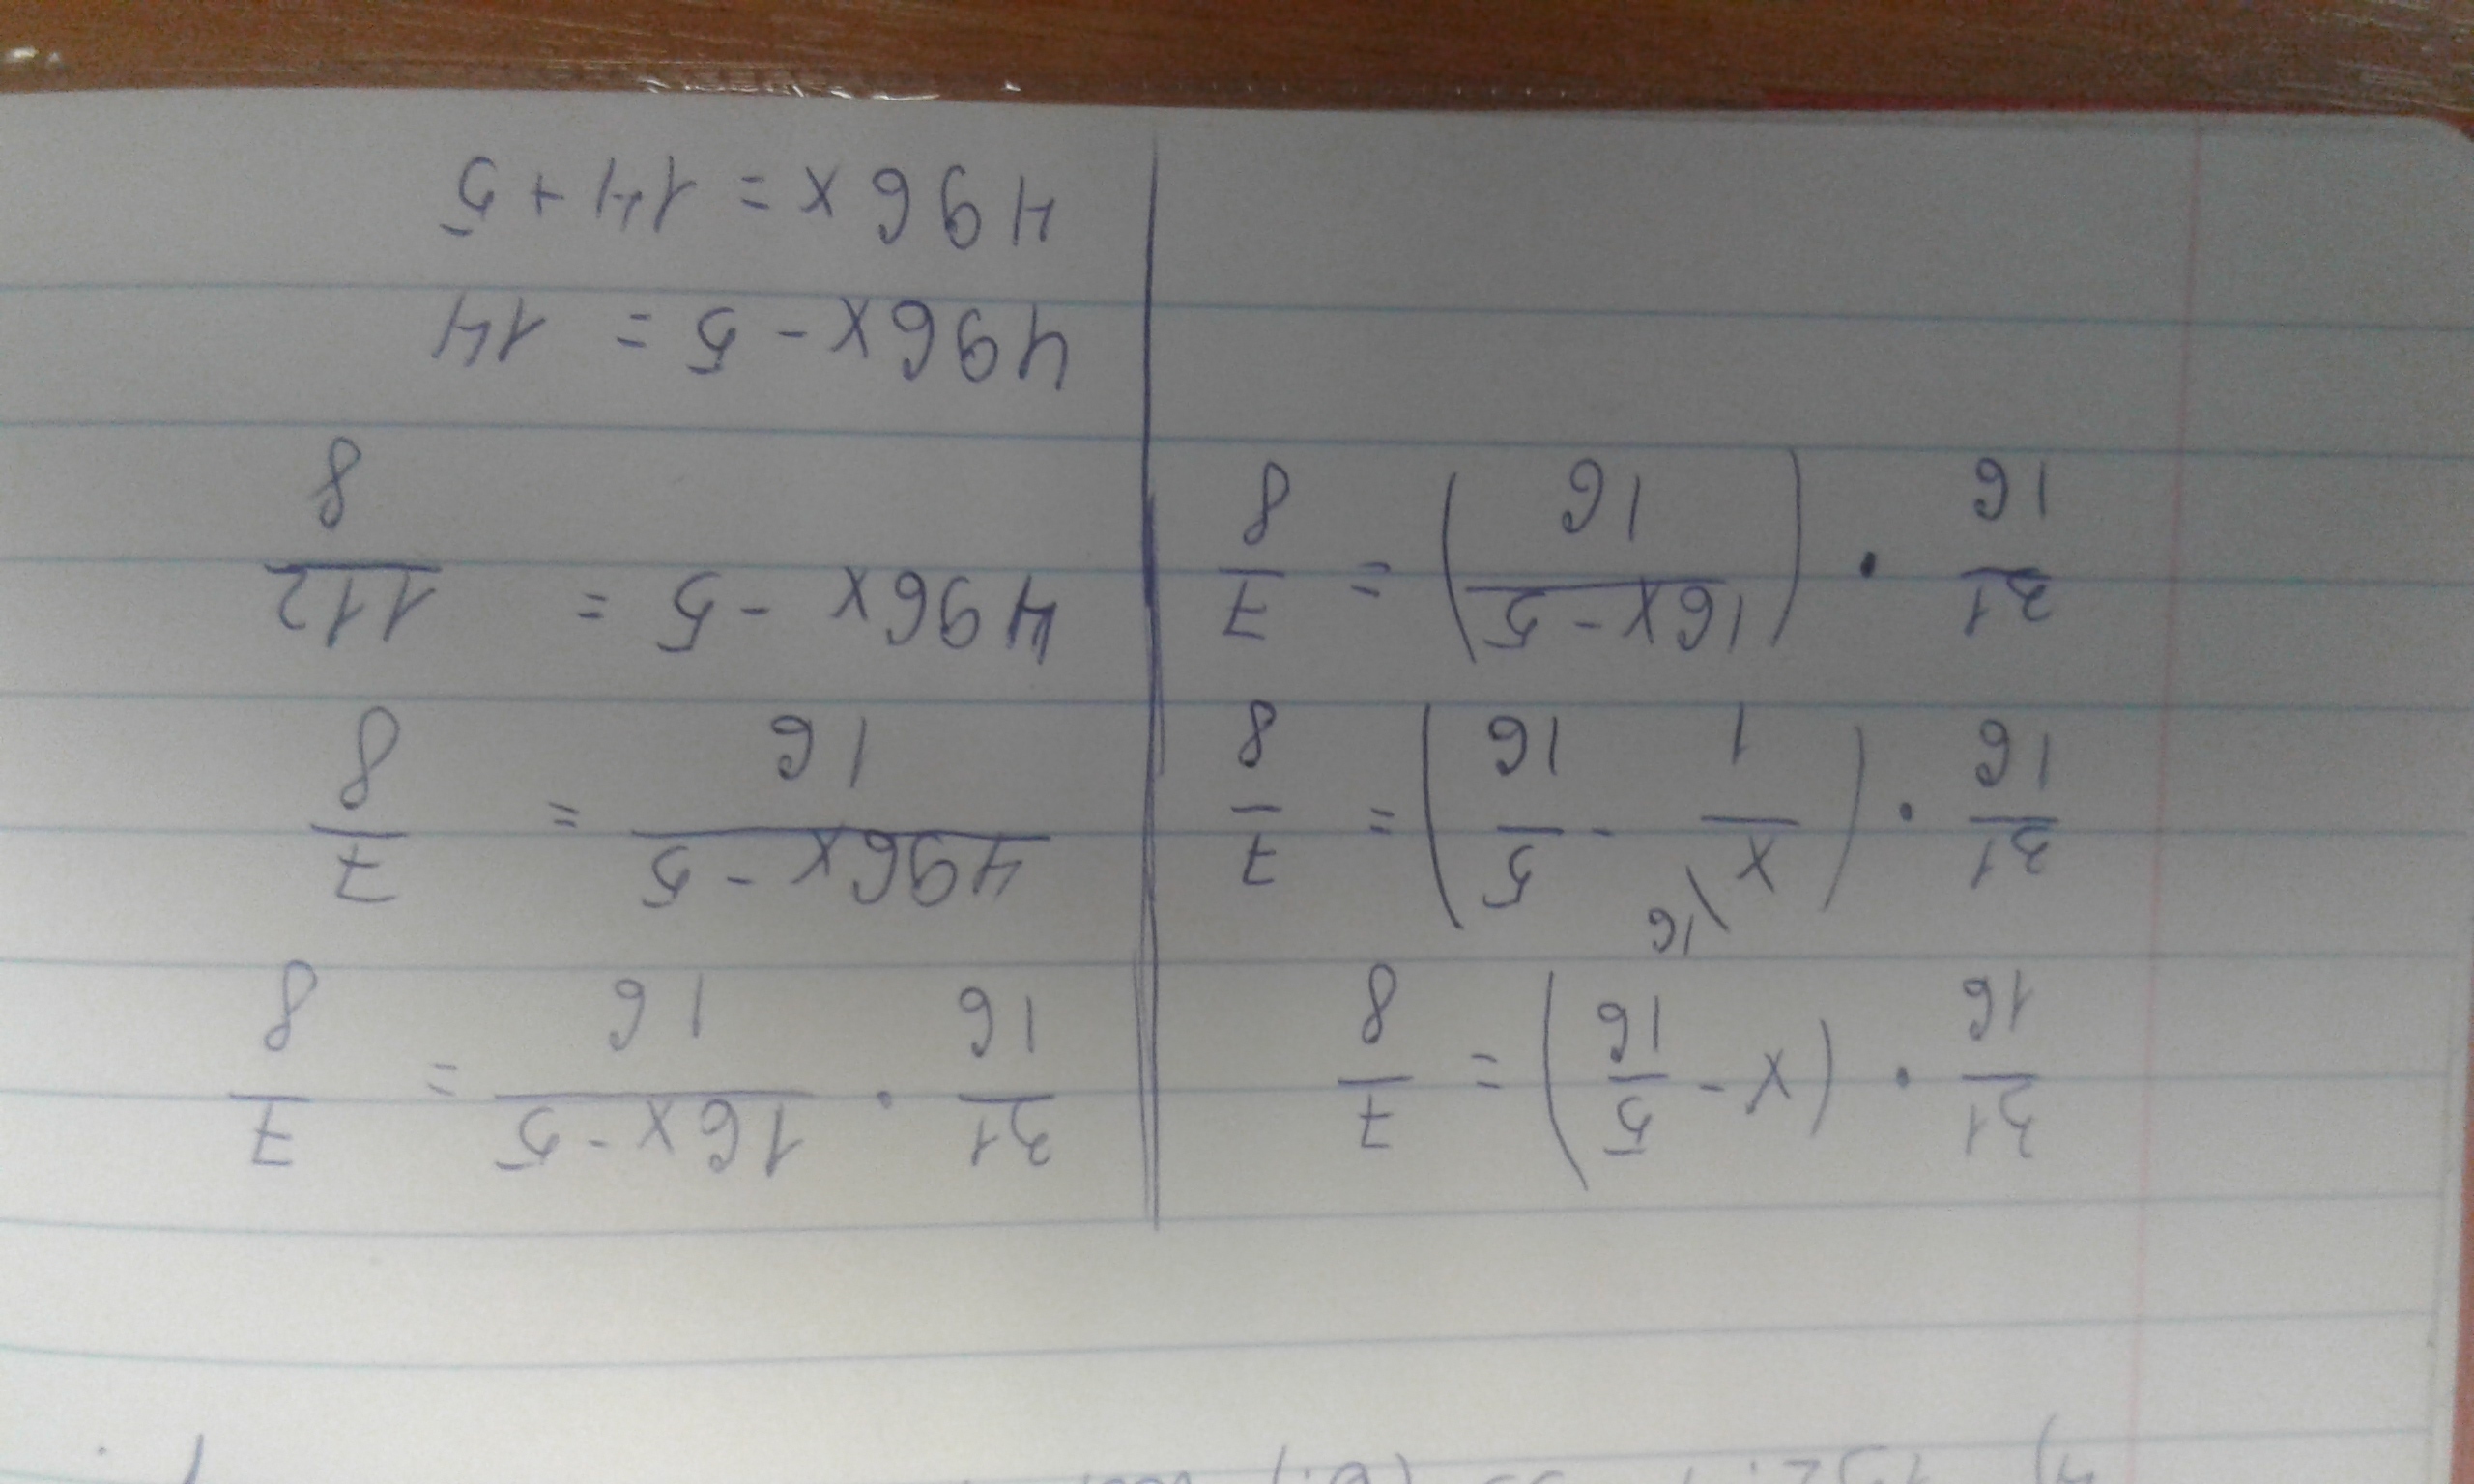 31/16 · (x - 5/16) = 7/8
31/16 · (x\16/1 - 5/16) = 7/8
31/16 · (16x-5/16) = 7/8
31/16 · 16x-5/16 = 7/8
496x-5/16 = 7/8
496x - 5 = 112/8
496x - 5 = 14
496x = 14 + 5